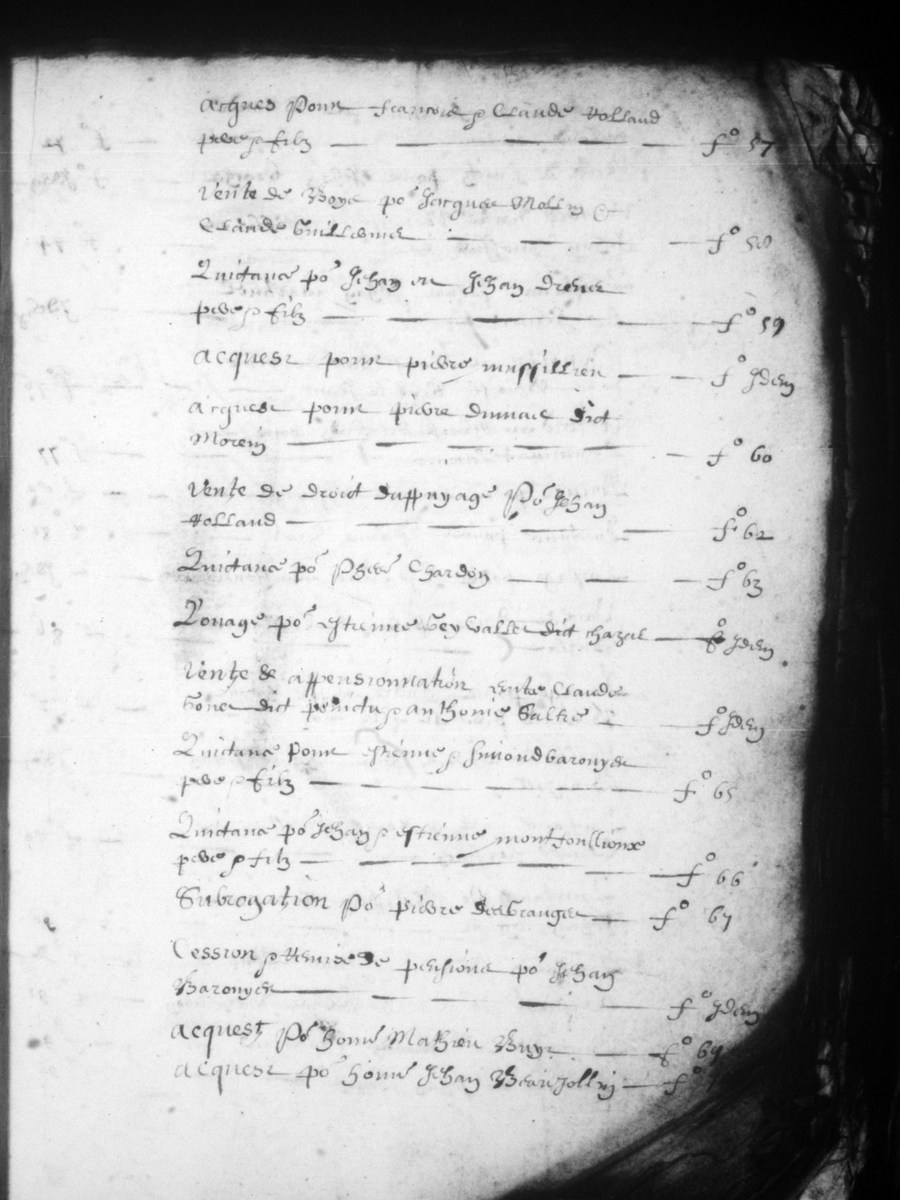 acquest pour francois & Claude Rolland
pere & filz fo 57
Vente de Boys po Jacques Mollin &
Claude Guillermet fo 58
Quictance po Jehan et Jehan
pere & filz fo 59
acquest pour pierre mussillien fo Idem
acquest pour pierre dict
Morein fo 60
Vente de droict dappuyage Po Jehan
Rolland fo 62
Quictance po Chardon fo 63
Louage po estienne Vallet dict chazal fo Idem
Vente de appensionnation Claude
dict & anthonie fo Idem
Quictance pour estienne & Simond baronyer
pere & filz fo 65
Quictance po Jehan & estienne montfoullioux
pere & filz fo 66
Subrogation po pierre desgranges fo 67
Cession & Remise de pensions po Jehan
Baronyer fo Idem
acquest po home Mathieu fo 69
acquest po home Jehan Beaujollin fo